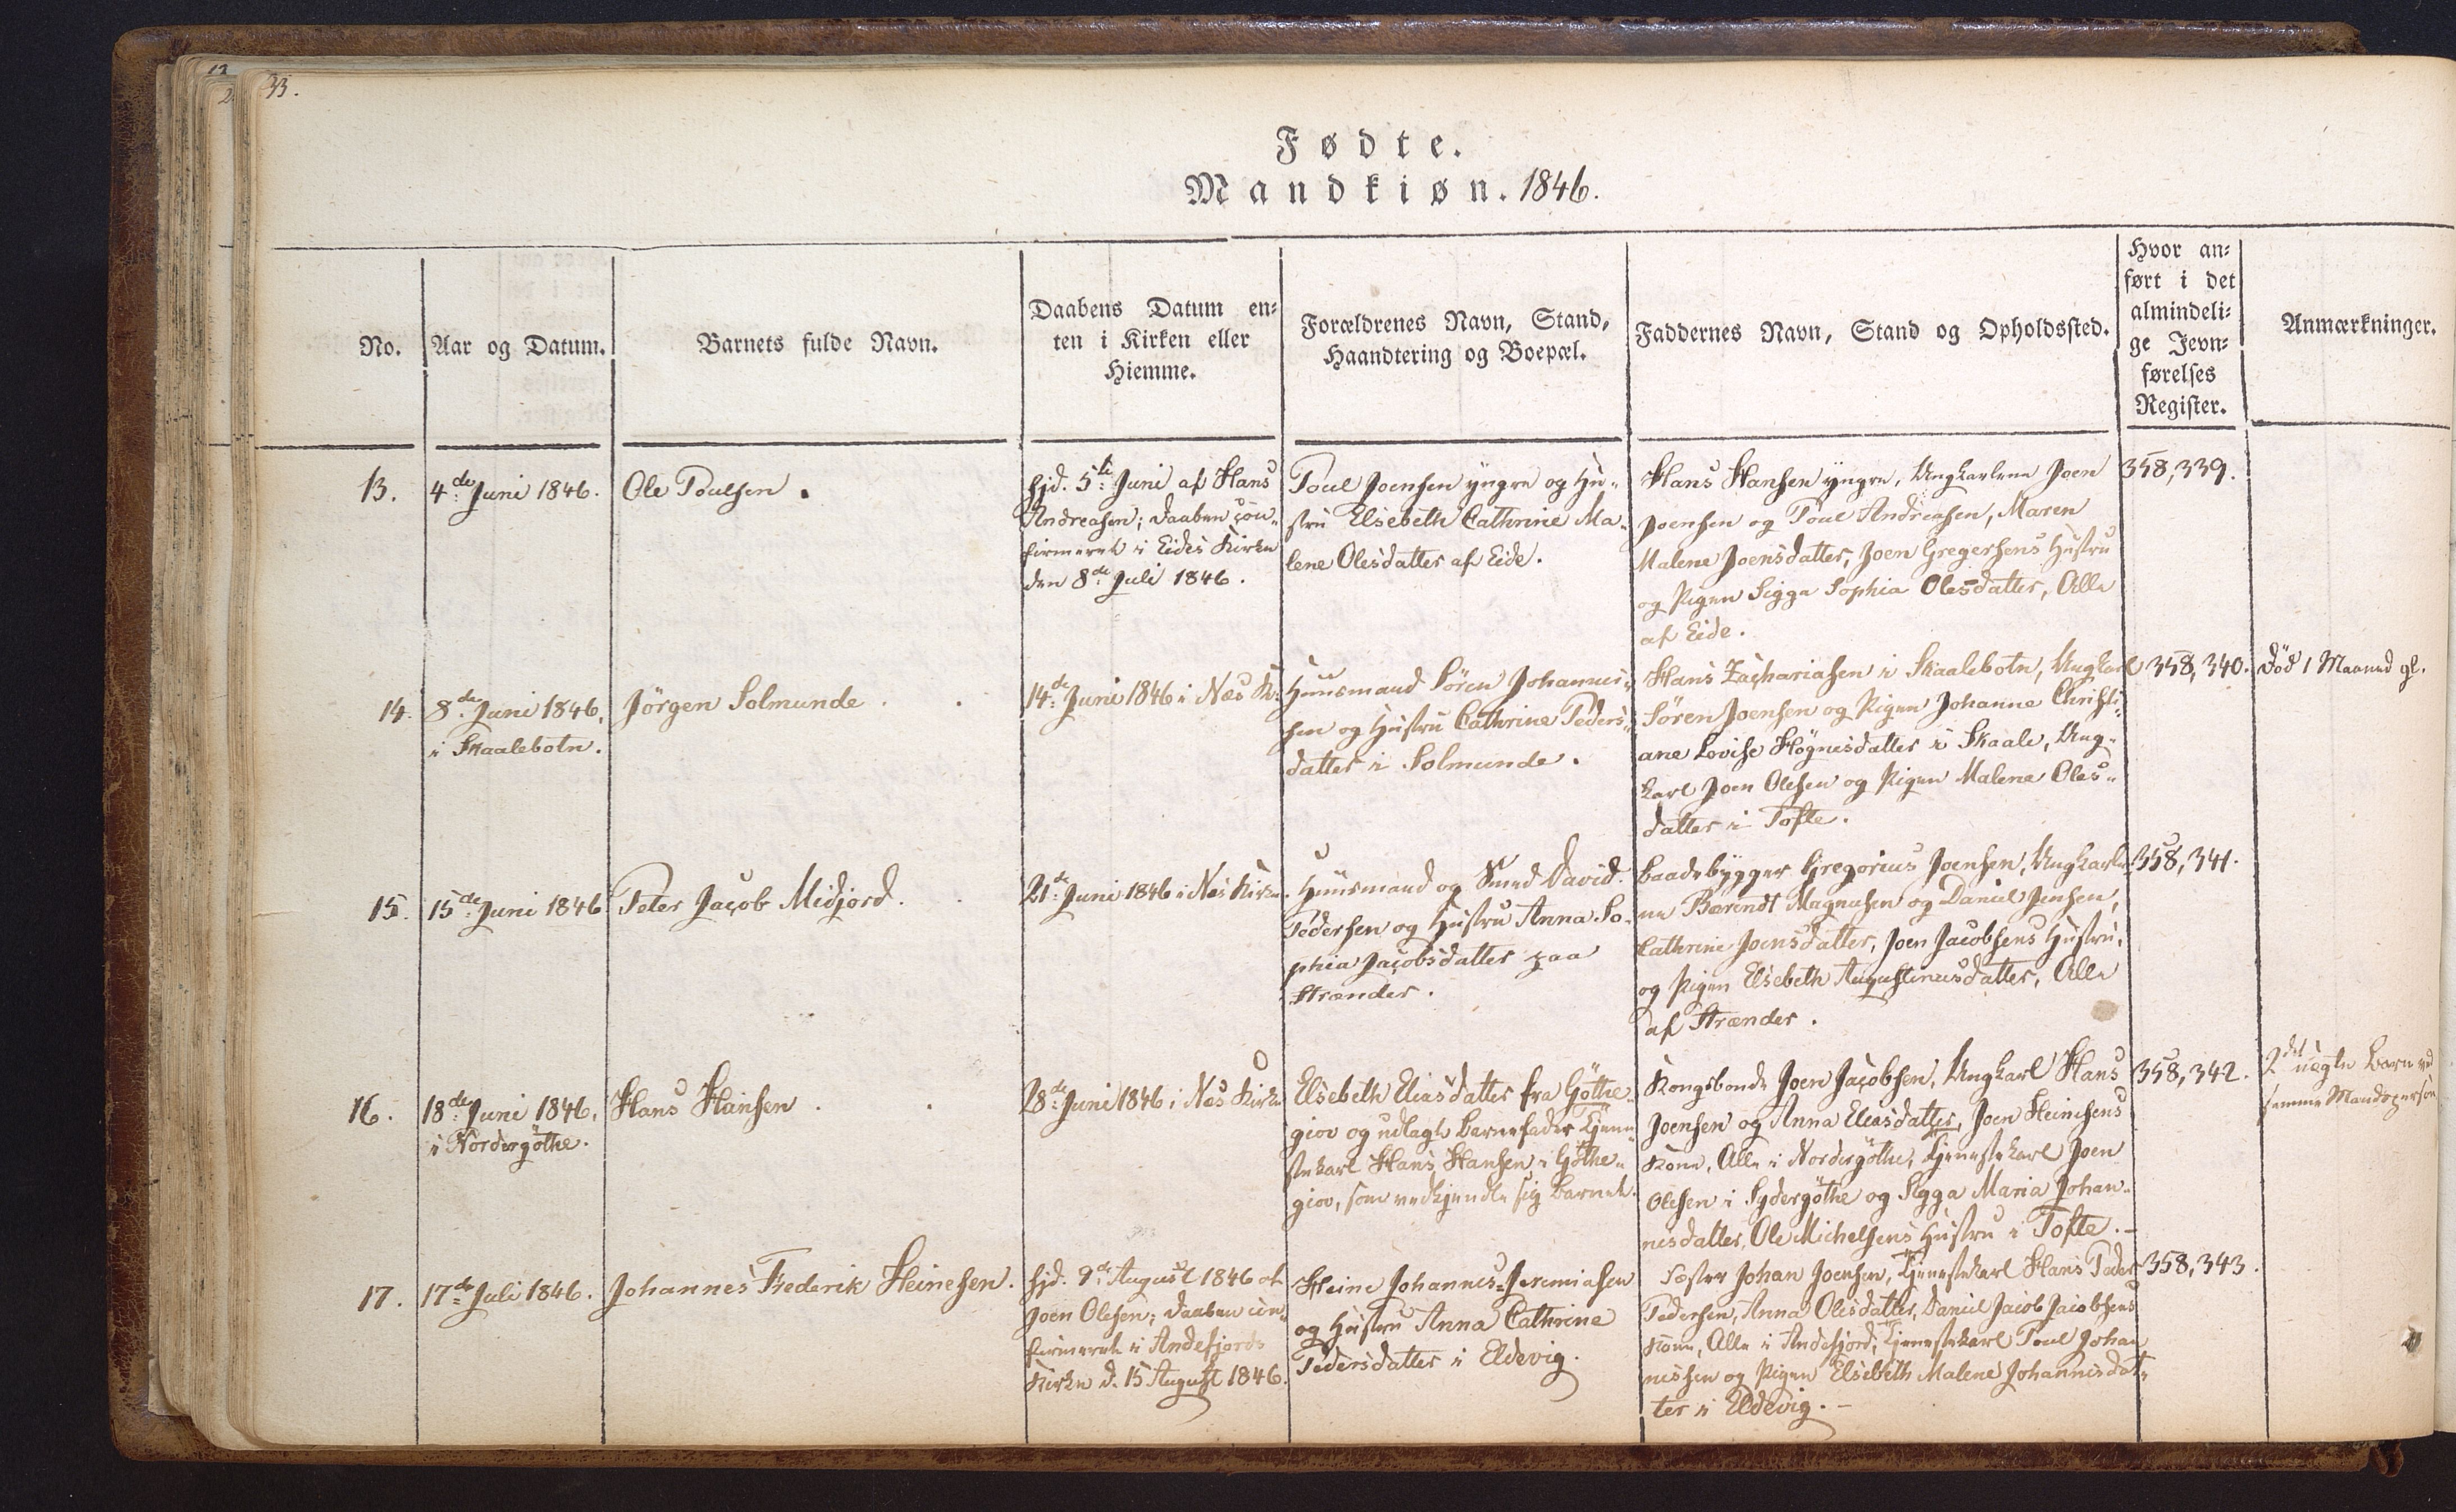 33.
Fødte.
Mandkiøn. 1846.
No.
Aar og Datum.
Barnets fulde Navn.
Daabens Datum en-
ten i Kirken eller
Hiemme.
Forældrenes Navn, Stand,
Haandtering og Boepæl.
Faddernes Navn, Stand og Opholdssted.
Hvor an-
ført i det
almindeli-
ge Jevn-
førelses
Register.
Anmærkninger.
13.
4de Juni 1846.
Ole Poulsen.
hjd. 5te Juni af Hans
Andreasen; Daaben con-
firmeret i Eides Kirke
den 8de Juli 1846.
Poul Joensen yngre og Hu-
stru Elsebeth Cathrine Ma-
lene Olesdatter af Eide.
Hans Hansen yngre, Ungkarlene Joen
Joensen og Poul Andreasen, Maren
Malene Joensdatter, Joen Gregersens Hustru
og Pigen Sigga Sophia Olesdatter, Alle
af Eide.
358,339.
14.
8de Juni 1846,
i Skaalebotn.
Jörgen Solmunde
14de Juni 1846 i Næs K:
Huusmand Sören Johannes-
sen og Hustru Cathrine Peders-
datter i Solmunde.
Hans Zachariasen i Skaalebotn, Ungkarl
Sören Joensen og Pigen Johanne Christi-
ane Lovise Högnesdatter i Skaale, Ung-
karl Joen Olesen og Pigen Malene Oles-
datter i Tofte.
358,340.
död 1 Maaned gl.
15.
15de Juni 1846
Peter Jacob Midjord.
21de Juni 1846 i Næs Kirke
Huusmand og Smed David
Pedersen og Hustru Anna So-
phia Jacobsdatter paa
Strænder.
Baadebygger Gregorius Joensen, Ungkarle-
ne Barendt Magnusen og Daniel Jensen,
Cathrine Joensdatter, Joen Jacobsens Hustru,
og Pigen Elsebeth Augustinusdatter, Alle
af Strænder.
358,341.
16.
18de Juni 1846,
i Nordregöthe.
Hans Hansen
28de Juni 1846 i Næs Kirke
Elsebeth Eliasdatter fra Göthe-
giov og udlagte Barnefader Tjene-
stekarl Hans Hansen i Göthe-
giov, som vedkjendte sig Barnet.
Kongsbonde Joen Jacobsen, Ungkarl Hans
Joensen og Anna Eliasdatter, Joen Heinesens
Kone, Alle i Nordregöthe, Tjenestekarl Joen
Olesen i Sydregöthe og Sigga Maria Johan-
nesdatter, Ole Michelsens Hustru i Tofte.
358,342.
2det uægte Barn ved
samme Mandsperson
17.
17de Juli 1846.
Johannes Frederik Heinesen.
hjd. 9de August 1846 af
Joen Olesen; Daaben con-
firmeret i Andefjords
Kirke d. 15 August 1846.
Heine Johannes-Jeremiasen
og Hustru Anna Cathrine
Pedersdatter i Eldevig.
Fæster Johan Joensen, Tjenestekarl Hans Peder
Pedersen, Anna Olesdatter, Daniel Jacob Jacobsens
Kone, Alle i Andefjord, Tjenestekarl Poul Johan-
nessen og Pigen Elsebeth Malene Johannesdat-
ter i Eldevig.
358,343.